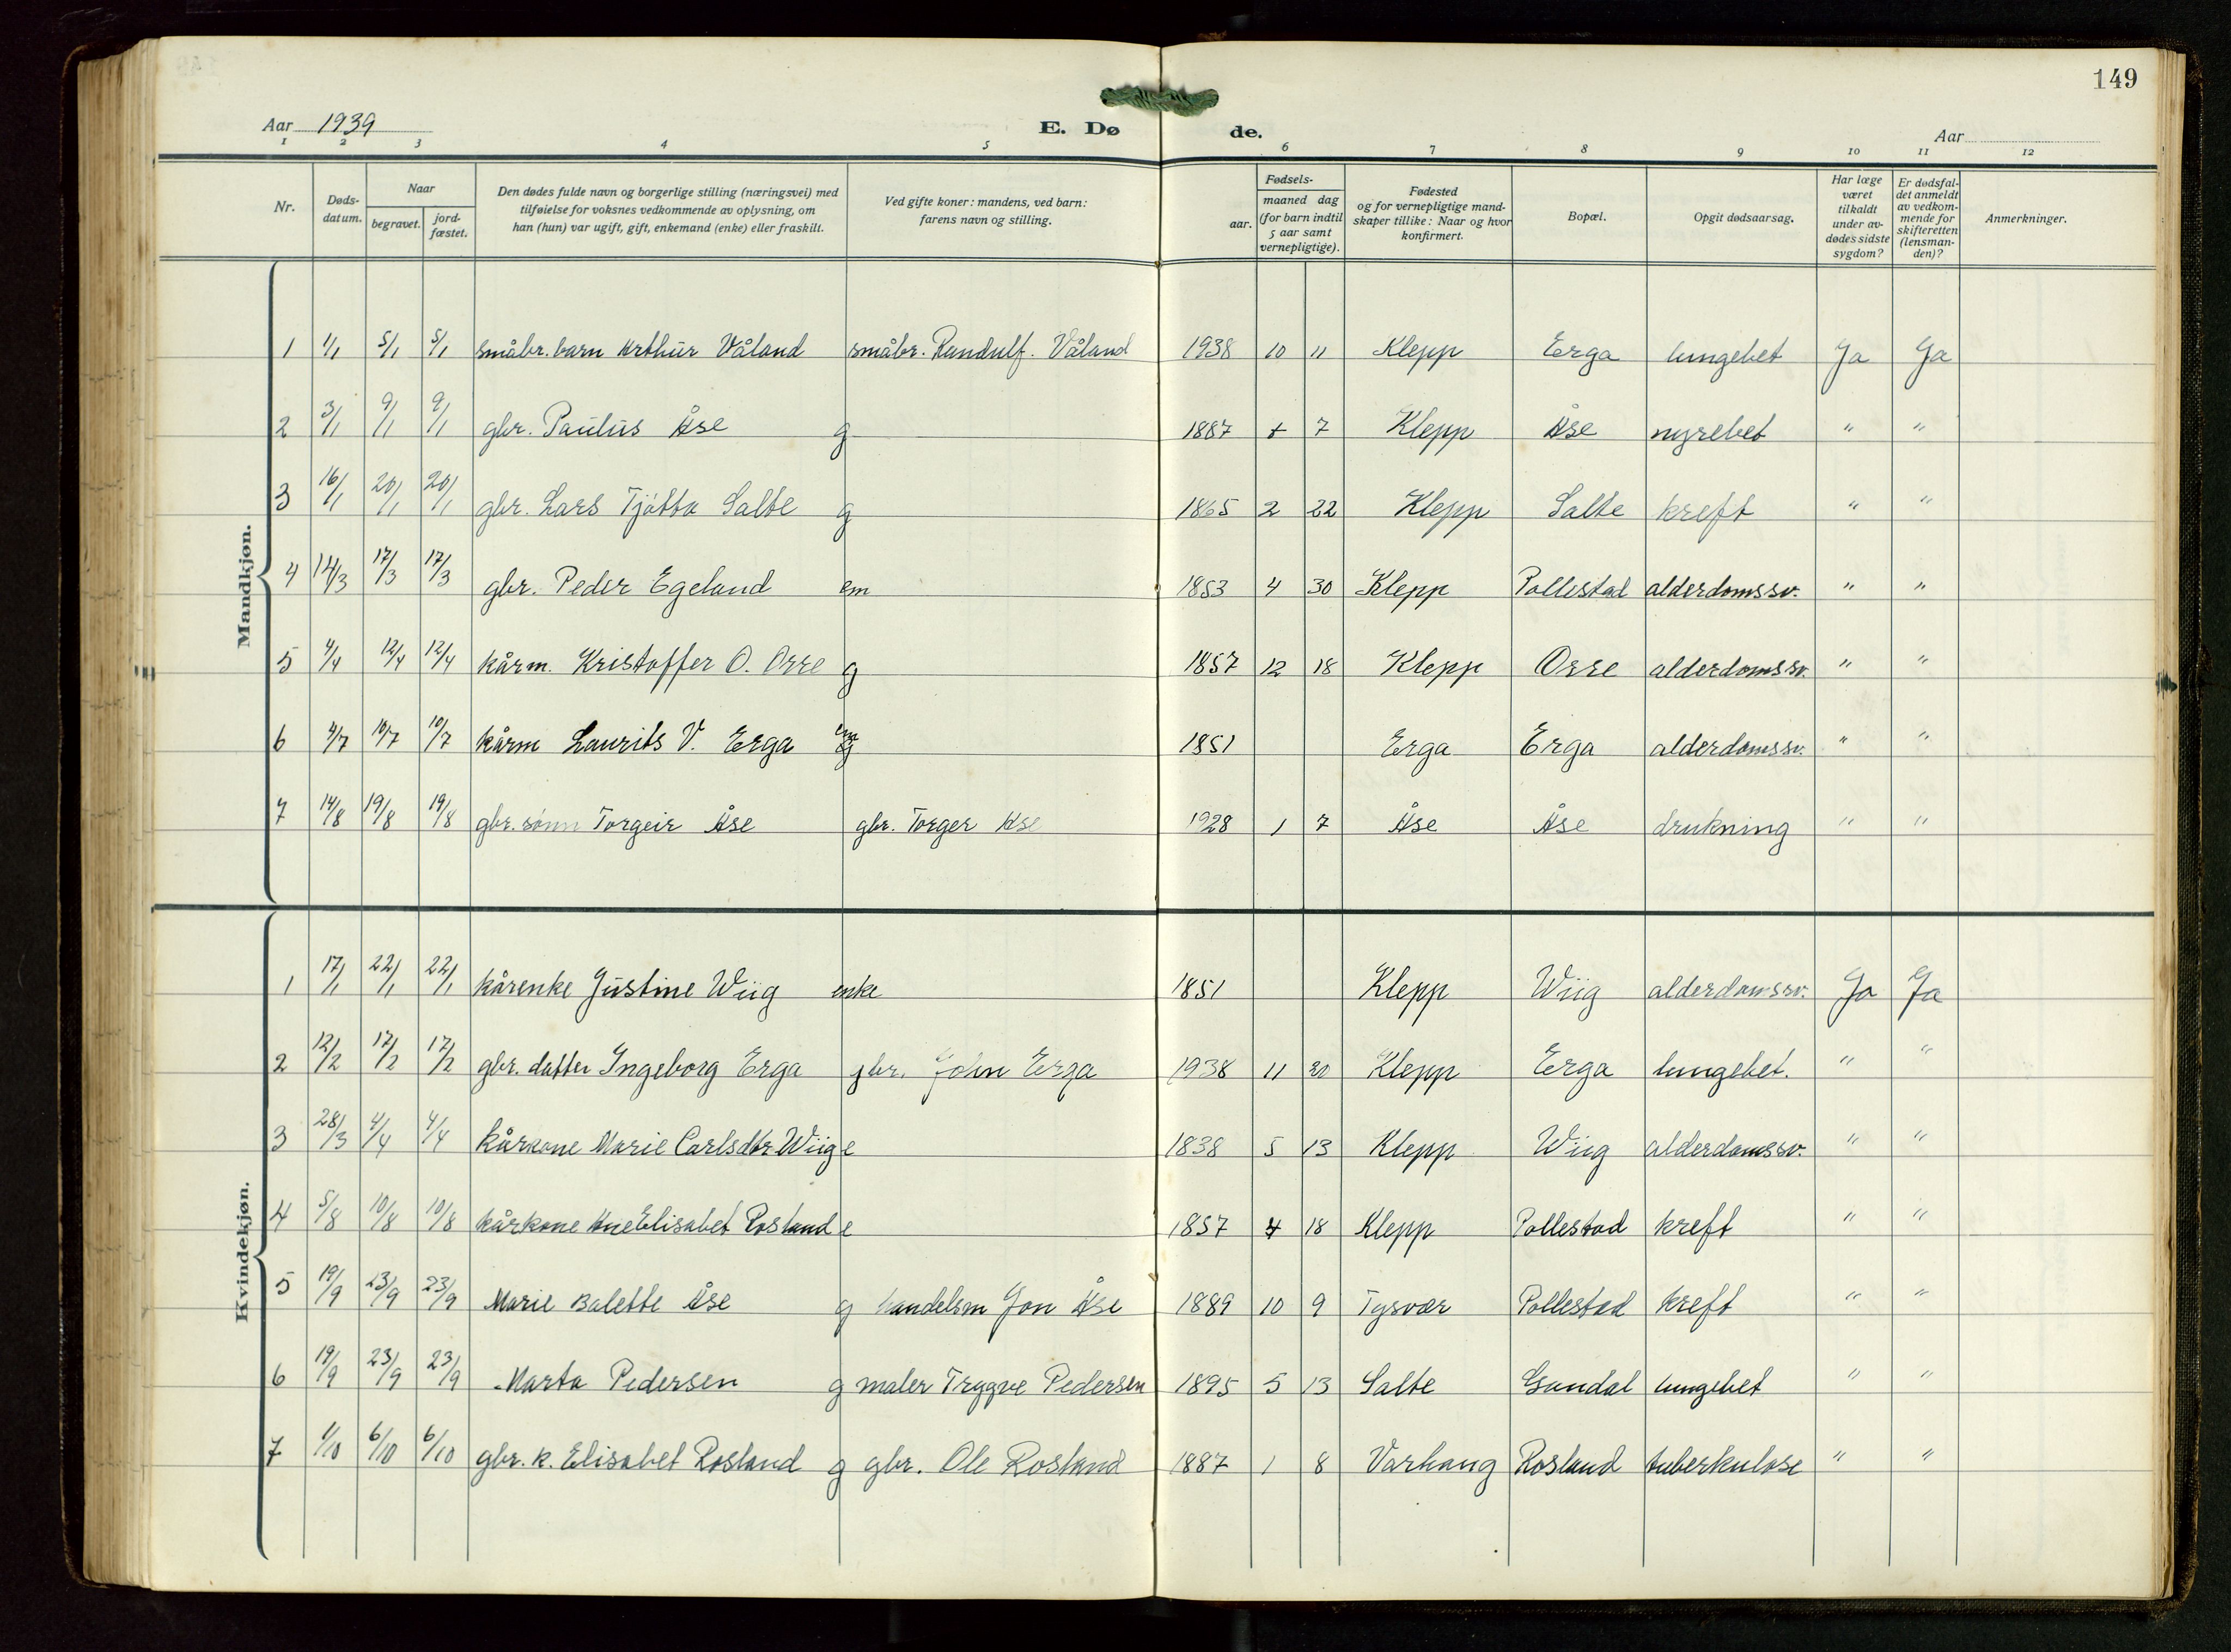 149
Aar 1939
E. Dø de.
Aar
1 2 3 4 5 6 7 8 9 10 11 12
Nr.
Døds-datum.
Naar
begravet.
jord-fæstet.
Den dødes fulde navn og borgerlige stilling (næringsvei) med
tilføielse for voksnes vedkommende av oplysning, om
han (hun) var ugift, gift, enkemand (enke) eller fraskilt.
Ved gifte koner: mandens, ved barn:
farens navn og stilling.
Fødsels-
aar.
maaned dag
(for barn indtil
5 aar samt
vernepligtige).
Fødested
og for vernepligtige mand-
skaper tillike: Naar og hvor
konfirmert.
Bopæl.
Opgit dødsaarsag.
Har læge
været
tilkaldt
under av-
dødes sidste
sygdom?
Er dødsfal-
det anmeldt
av vedkom-
mende for
skifteretten
(lensman-
den)?
Anmerkninger.
Mandkjøn.
1 1/1 5/1 5/1 småbr. barn Arthur Våland småbr. Randulf. Våland 1938 10 11 Klepp Erga lungebet Ja Ja
2 3/1 9/1 9/1 gbr. Paulus Åse g 1887 7 Klepp Åse nyrebet " "
3 16/1 20/1 20/1 gbr. Lars Tjåtta Salte g 1865 2 22 Klepp Salte kreft " "
4 14/3 17/3 17/3 gbr. Peder Egeland em 1853 4 30 Klepp Pollestad alderdomssv. " "
5 4/4 12/4 12/4 kårm. Kristoffer O. Orre g 1857 12 18 Klepp Orre alderdomssv. " "
6 4/7 10/7 10/7 kårm Laurits V. Erga em 1851 Erga Erga alderdomssv. " "
7 14/8 19/8 19/8 gbr. sønn Torgeir Åse gbr. Torger Åse 1928 1 7 Åse Åse drukning " "
Kvindekjøn.
1 17/1 22/1 22/1 kårenke Justine Wiig enke 1851 Klepp Wiig alderdomssv. Ja Ja
2 12/2 17/2 17/2 gbr. datter Ingeborg Erga gbr. John Erga 1938 11 20 Klepp Erga lungebet. " "
3 28/3 4/4 4/4 kårkone Marie Carlsdtr Wiig e 1838 5 13 Klepp Wiig alderdomssv. " "
4 5/8 10/8 10/8 kårkone Ane Elisabet Rosland e 1857 4 18 Klepp Pollestad kreft " "
5 19/9 23/9 23/9 Marie Balette Åse g handelsm Jon Åse 1889 10 9 Tysvær Pollestad kreft " "
6 19/9 23/9 23/9 Marta Pedersen g maler Trygve Pedersen 1895 5 13 Salte Gandal lungebet " "
7 1/10 6/10 6/10 gbr. k. Elisabet Rosland g gbr. Ole Rosland 1887 1 8 Varhaug Rosland tuberkulose " "